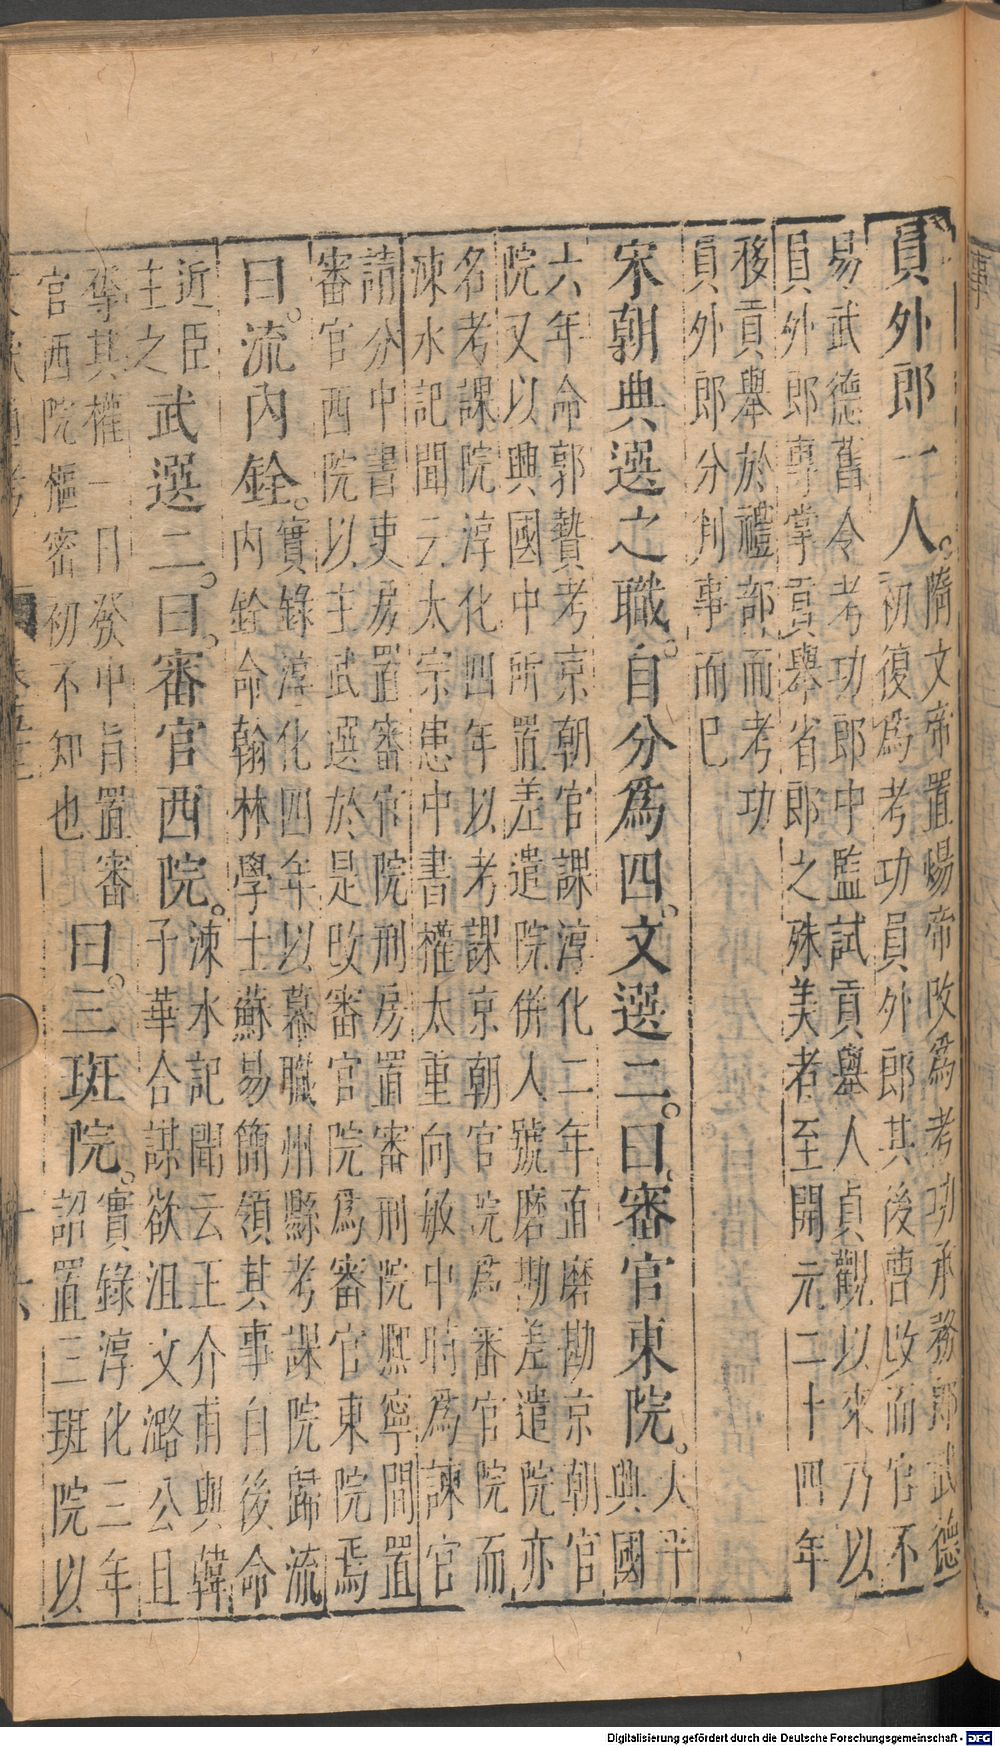 員外郎一人。隋文帝置煬帝改為考功承務郎武德
初復為考功員外郎其後曹改而官不
易武德舊令考功郎中監試貢舉人貞觀以來乃以
員外郎專掌貢舉省郎之殊美者至開元二十四年
移貢舉於禮部而考功
員外郎分判事而已
宋朝典選之職。自分為四。文選二。曰。審官東院。太平
興國
六年命郭贄考京朝官課淳化二年直磨勘京朝官
院又以興國中所置差遣院併人號磨勘差遣院亦
名考課院淳化四年以考課京朝官院為審官院而
涑水記聞云太宗患中書權太重向敏中時為諫官
請分中書吏房置審官院刑房置審刑院熙寧間置
審官西院以主武選於是改審官院為審官東院焉
曰。流內銓。實錄淳化四年以幕職州縣考課院歸流
內銓命翰林學士蘇易簡領其事自後命
近臣
主之武選二。曰。審官西院。涑水記聞云王介甫與韓
子華合謀欲沮文潞公且
奪其權一日發中旨置審
官西院樞密初不知也曰。三班院。實錄淳化三年
詔置三班院以
十六
Digitalisierung gefördert durch die Deutsche Forschungsgemeinschaft - DFG